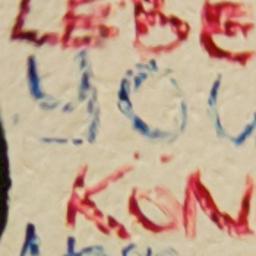 LEBE
YOU
KÖN